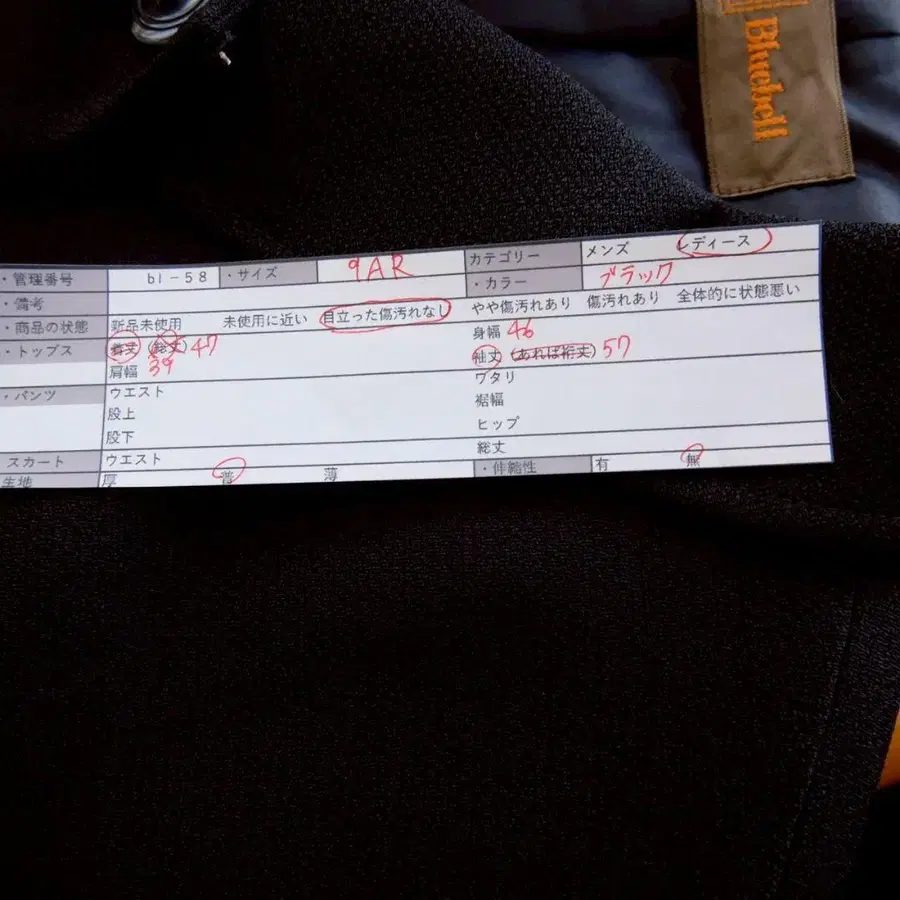 Bluebell
・管理番号 bl-58 ・サイズ 9AR カテゴリー メンズ レディース
・カラー ブラック
・備考
・商品の状態 新品未使用 未使用に近い 目立った傷汚れなし やや傷汚れあり 傷汚れあり 全体的に状態悪い
・トップス 着丈 (総丈) 47 身幅 46
肩幅 39 袖丈 (あれば裄丈) 57
・パンツ ウエスト ワタリ
股上 裾幅
股下 ヒップ
スカート ウエスト 総丈
生地 厚 普 薄 ・伸縮性 有 無